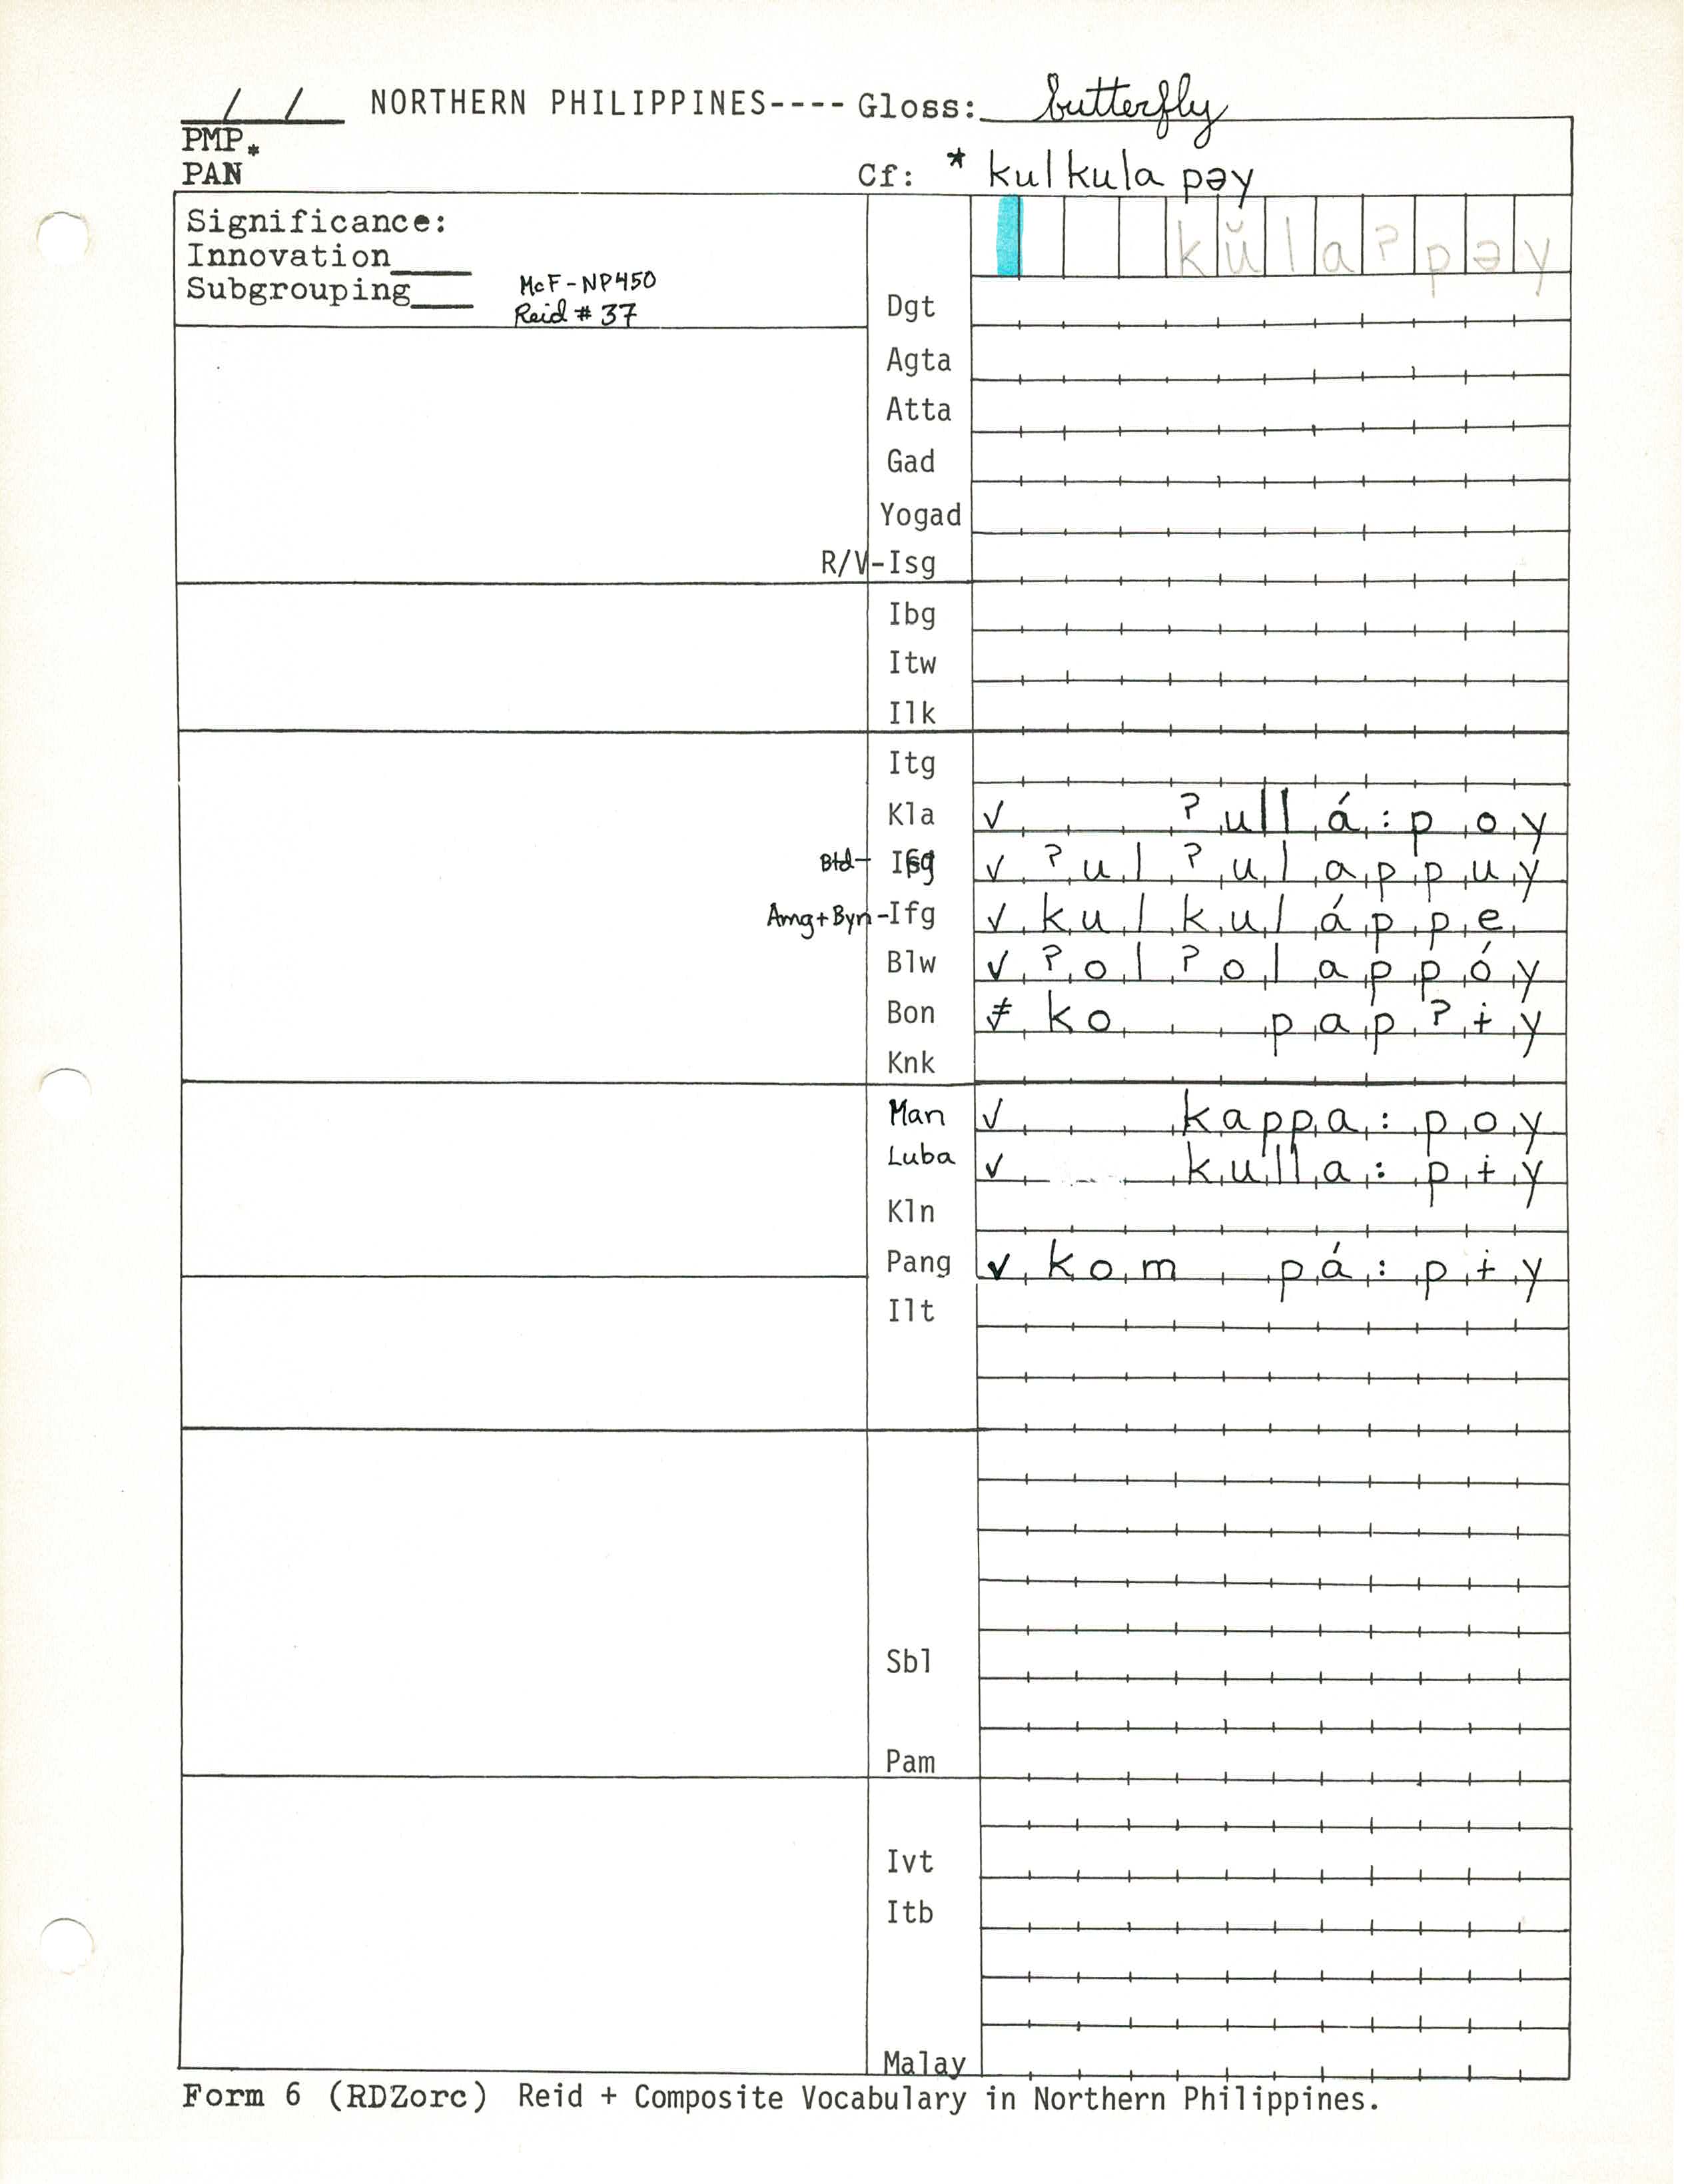 / / NORTHERN PHILIPPINES---- Gloss: butterfly
PMP*
PAN Cf: * kulkulapəy
Significance:
Innovation____
Subgrouping____
McF-NP450
Reid # 37
kŭlaʔpəy
Dgt
Agta
Atta
Gad
Yogad
R/V-Isg
Ibg
Itw
Ilk
Itg
Kla ✓ ʔullá:poy
Btd- Ifg ✓ ʔulʔulappuy
Amg+Byn-Ifg ✓ kulkuláppe
Blw ✓ ʔolʔolappóy
Bon ≠ ko papʔɨy
Knk
Man ✓ kappa:poy
Luba ✓ kulla:pɨy
Kln
Pang ✓ kom pá:pɨy
Ilt
Sbl
Pam
Ivt
Itb
Malay
Form 6 (RDZorc) Reid + Composite Vocabulary in Northern Philippines.